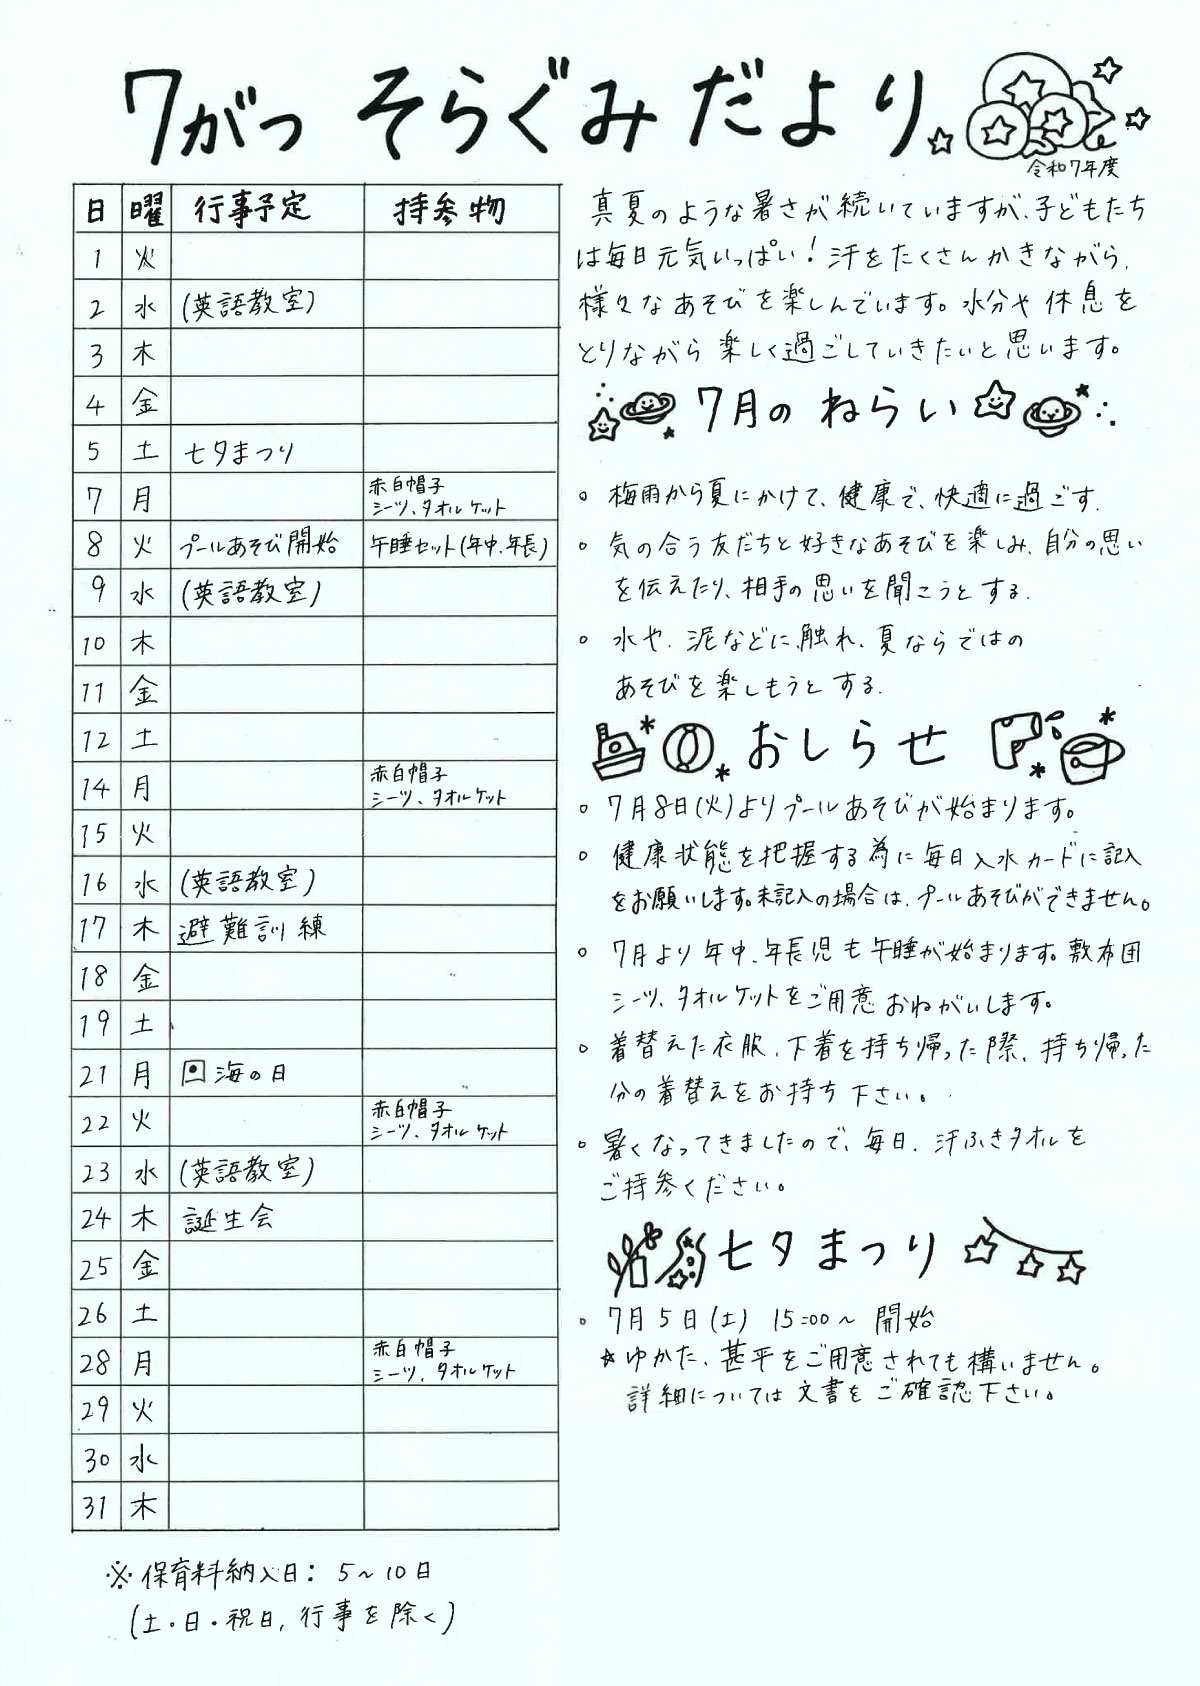 7がつ そらぐみだより
令和7年度
日 曜 行事予定 持参物
1 火
2 水 (英語教室)
3 木
4 金
5 土 七夕まつり
7 月 赤白帽子
シーツ、タオルケット
8 火 プールあそび開始 午睡セット(年中、年長)
9 水 (英語教室)
10 木
11 金
12 土
14 月 赤白帽子
シーツ、タオルケット
15 火
16 水 (英語教室)
17 木 避難訓練
18 金
19 土
21 月 海の日
22 火 赤白帽子
シーツ、タオルケット
23 水 (英語教室)
24 木 誕生会
25 金
26 土
28 月 赤白帽子
シーツ、タオルケット
29 火
30 水
31 木
※保育料納入日：5～10日
(土・日・祝日、行事を除く)
真夏のような暑さが続いていますが、子どもたち
は毎日元気いっぱい！汗をたくさんかきながら、
様々なあそびを楽しんでいます。水分や休息を
とりながら楽しく過ごしていきたいと思います。
7月のねらい
○ 梅雨から夏にかけて、健康で、快適に過ごす.
○ 気の合う友だちと好きなあそびを楽しみ、自分の思い
を伝えたり、相手の思いを聞こうとする.
○ 水や、泥などに触れ、夏ならではの
あそびを楽しもうとする.
おしらせ
○ 7月8日(火)よりプールあそびが始まります。
○ 健康状態を把握する為に毎日入水カードに記入
をお願いします。未記入の場合は、プールあそびができません。
○ 7月より年中、年長児も午睡が始まります。敷布団
シーツ、タオルケットをご用意おねがいします。
○ 着替えた衣服、下着を持ち帰った際、持ち帰った
分の着替えをお持ち下さい。
○ 暑くなってきましたので、毎日、汗ふきタオルを
ご持参ください。
七夕まつり
○ 7月5日(土) 15:00～ 開始
☆ゆかた、甚平をご用意されても構いません。
詳細については文書をご確認下さい。